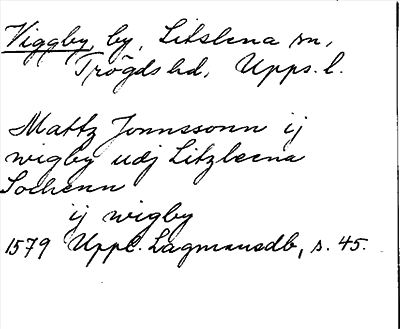 Viggby, by, Litslena sn,
Trögds hd, Upps. l.
Mattz Jonnssonn ij
wigby udj Litzleena
Sochenn
ij wigby
1579 Uppl. Lagmansdb, s. 45.